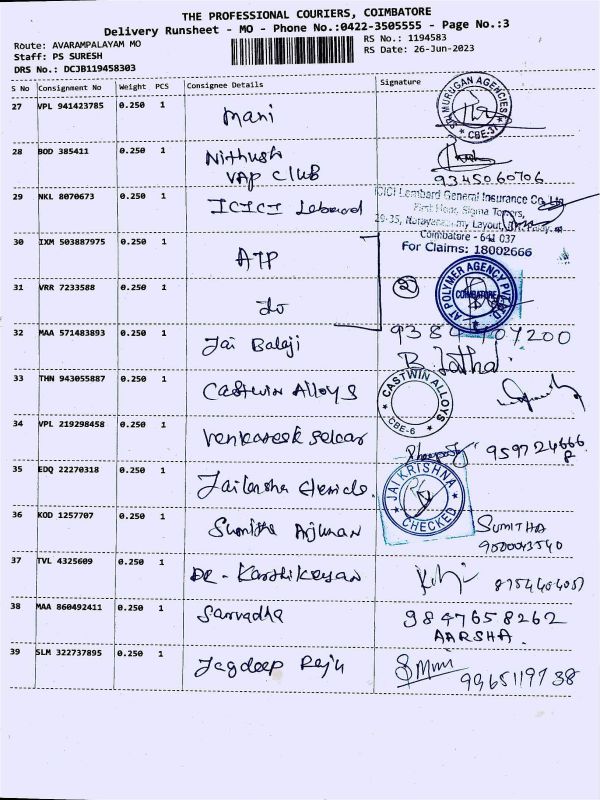 THE PROFESSIONAL COURIERS, COIMBATORE
Delivery Runsheet - MO - Phone No.:0422-3505555 - Page No.:3
Route: AVARAMPALAYAM MO
RS No.: 1194583
Staff: PS SURESH
RS Date: 26-Jun-2023
DRS No.: DCJB119458303
S No Consignment No Weight PCS Consignee Details Signature
27 VPL 941423785 0.250 1 Mani
MURUGAN AGENCIES
28 BOD 385411 0.250 1 Nithush
VAP Club
9345060706
29 NKL 8070673 0.250 1 ICICI
ICICI Lombard General Insurance Co. Ltd
First Floor, Sigma Towers,
Layout,
Coimbatore - 641 037
For Claims: 18002666
30 IXM 503887975 0.250 1 ATP
31 VRR 7233588 0.250 1 do
2
AT POLYMER AGENCY PVT LTD.
COIMBATORE
32 MAA 571483893 0.250 1 Jai Balaji
33 THN 943055887 0.250 1 Castwin Alloys
CASTWIN ALLOYS
CBE-6
34 VPL 219298458 0.250 1
9597224666
35 EDQ 22270318 0.250 1
JAI KRISHNA
CHECKED
36 KOD 1257707 0.250 1 Sumitha Arjunan
SUMITHA
9000043540
37 TVL 4325609 0.250 1 DR. Karthikeyan
38 MAA 860492411 0.250 1 Sarvadha
9847658262
AARSHA.
39 SLM 322737895 0.250 1 Jagdeep Raju
9965119738